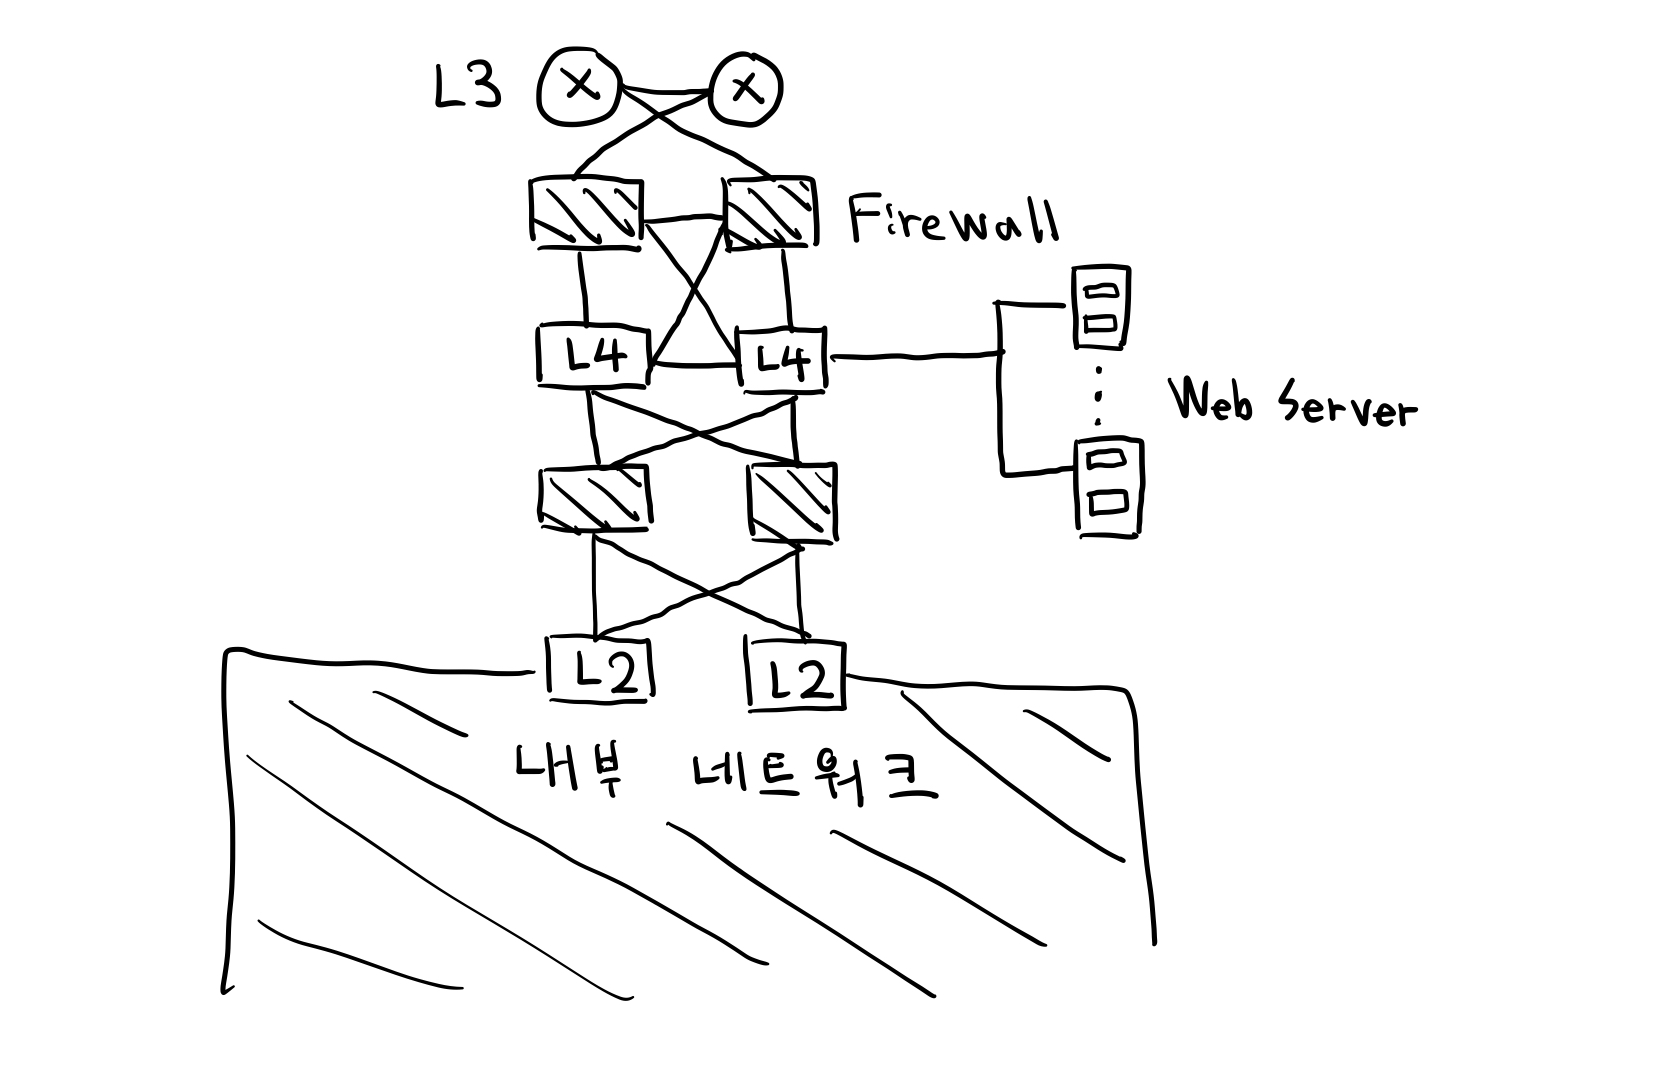 L3
Firewall
L4
L4
Web Server
L2
L2
내부 네트워크